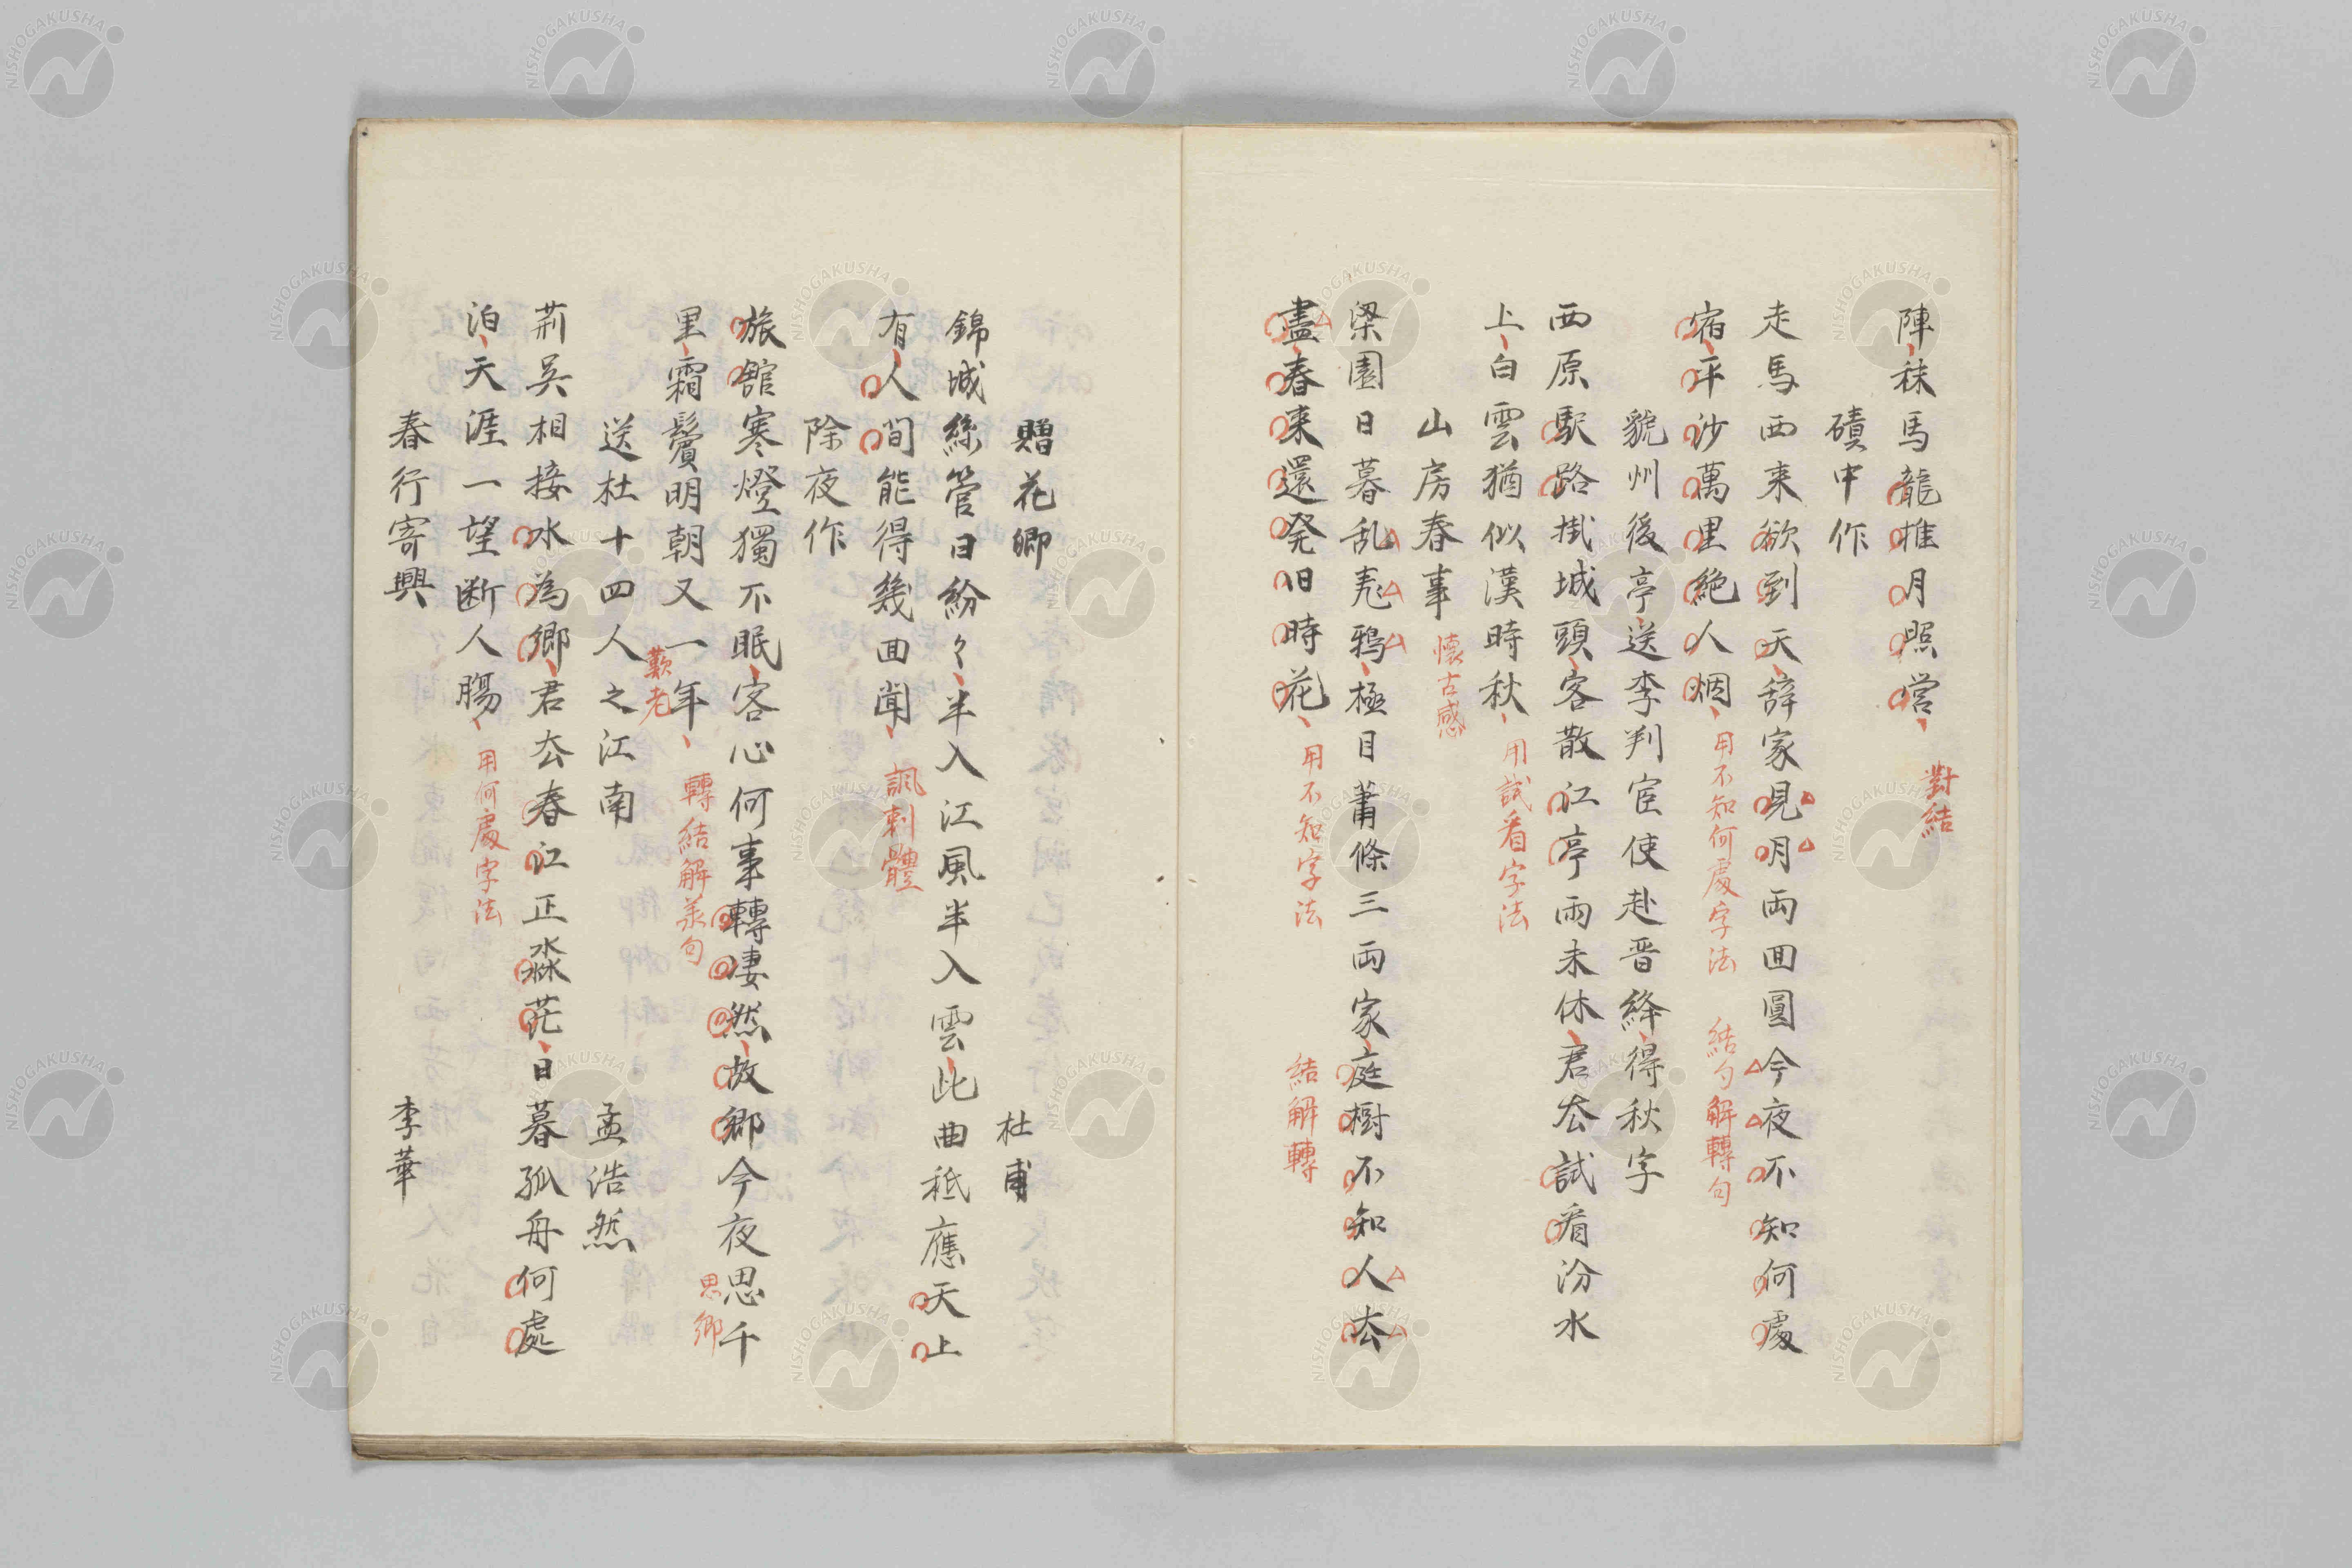 陣秣馬龍堆月照営 對結
磧中作
走馬西来欲到天辞家見月両囬圓今夜不知何處
宿平沙萬里絶人烟 用不知何處字法 結句解轉句
虢州後亭送李判官使赴晋絳得秋字
西原駅路掛城頭客散江亭雨未休君厺試看汾水
上白雲猶似漢時秋 用試看字法
山房春事 懐古感
梁園日暮乱飛鴉極目蕭條三両家庭樹不知人厺
盡春来還発旧時花 用不知字法 結解轉
贈花卿 杜甫
錦城絲管日紛々半入江風半入雲此曲秪應天上
有人間能得幾囬聞 諷刺體
除夜作
旅館寒燈獨不眠客心何事轉凄然故郷今夜思千 思郷
里霜鬢明朝又一年 歎老 轉結解承句
送杜十四人之江南 孟浩然
荊吴相接水為郷君厺春江正淼茫日暮孤舟何處
泊天涯一望断人膓 用何處字法
春行寄興 李華
NISHOGAKUSHA